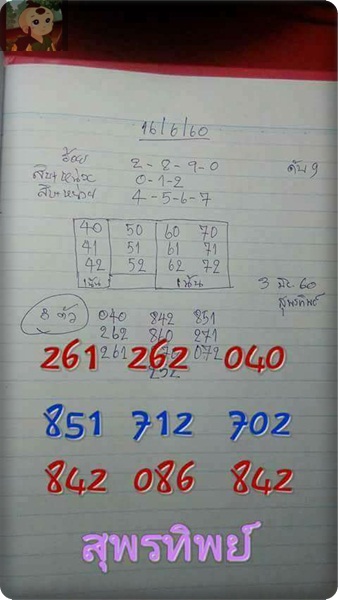 16/6/60
ร้อย 2-8-9-0 ดับ 9
สิบ+หน่วย 0-1-2
สิบ+หน่วย 4-5-6-7
40 50 60 70
41 51 61 71
42 52 62 72
เน้น เน้น
3 มิ.ย. 60
สุพรทิพย์
8 ตัว 040 842 851
262 860 271
261 072
261 262 040
851 712 702
842 086 842
สุพรทิพย์